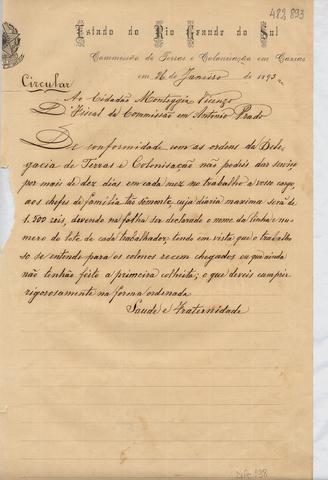 482.893
Estado do Rio Grande do Sul
Commissão de Terras e Colonisação em Caxias
em 26 de Janeiro de 1893
Circular
Ao Cidadão Monteggia Vicenzo
D. Fiscal da Commissão em Antonio Prado
De conformidade com as ordens da Dele-
gacia de Terras e Colonisação não podeis dar serviço
por mais de dez dias em cada mez no trabalho a vosso cargo
aos chefes de familia tão sómente, cuja diaria maxima será de
1.500 reis, devendo na folha ser declarado o nome da linha e nu-
mero do lote de cada trabalhador, tendo em vista que o trabalho
só se entende para os colonos recem chegados ou que ainda
não tenhão feito a primeira colheita; o que deveis cumprir
rigorosamente na forma ordenada
Saude e Fraternidade